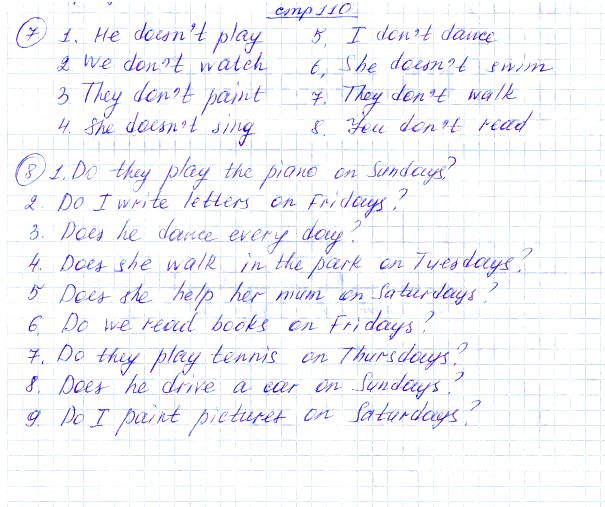 стр 110
7 1. He doesn't play 5. I don't dance
2 We don't watch 6, She doesn't swim
3 They don't paint 7. They don't walk
4. She doesn't sing 8. You don't read
8 1. Do they play the piano on Sundays?
2. Do I write letters on Fridays?
3. Does he dance every day?
4. Does she walk in the park on Tuesdays?
5 Does she help her mum on Saturdays?
6. Do we read books on Fridays?
7. Do they play tennis on Thursdays?
8. Does he drive a car on Sundays?
9. Do I paint pictures on Saturdays?